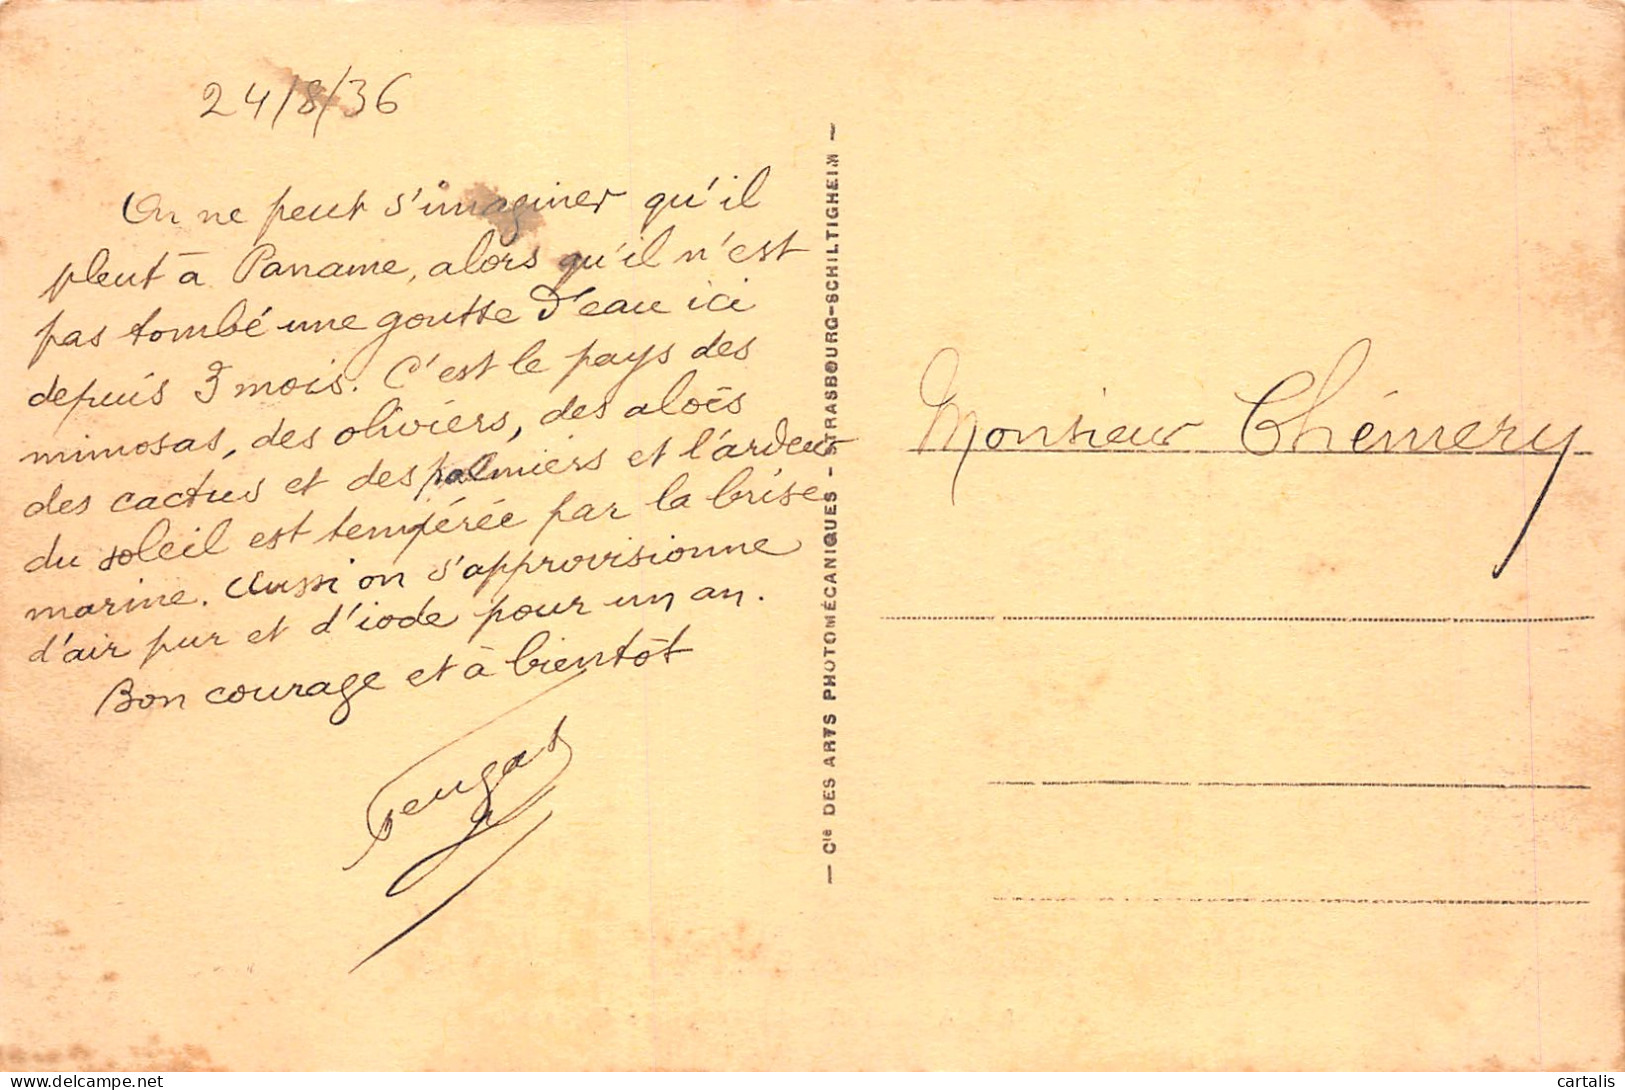 24/8/36
On ne peut s'imaginer qu'il
pleut à Paname, alors qu'il n'est
pas tombé une goutte d'eau ici
depuis 3 mois. C'est le pays des
mimosas, des oliviers, des aloës
des cactus et des palmiers et l'ardeur
du soleil est tempérée par la brise
marine. Aussi on s'approvisionne
d'air pur et d'iode pour un an.
Bon courage et à bientôt
— Cie DES ARTS PHOTOMÉCANIQUES - STRASBOURG-SCHILTIGHEIM —
Monsieur Chémery
cartalis